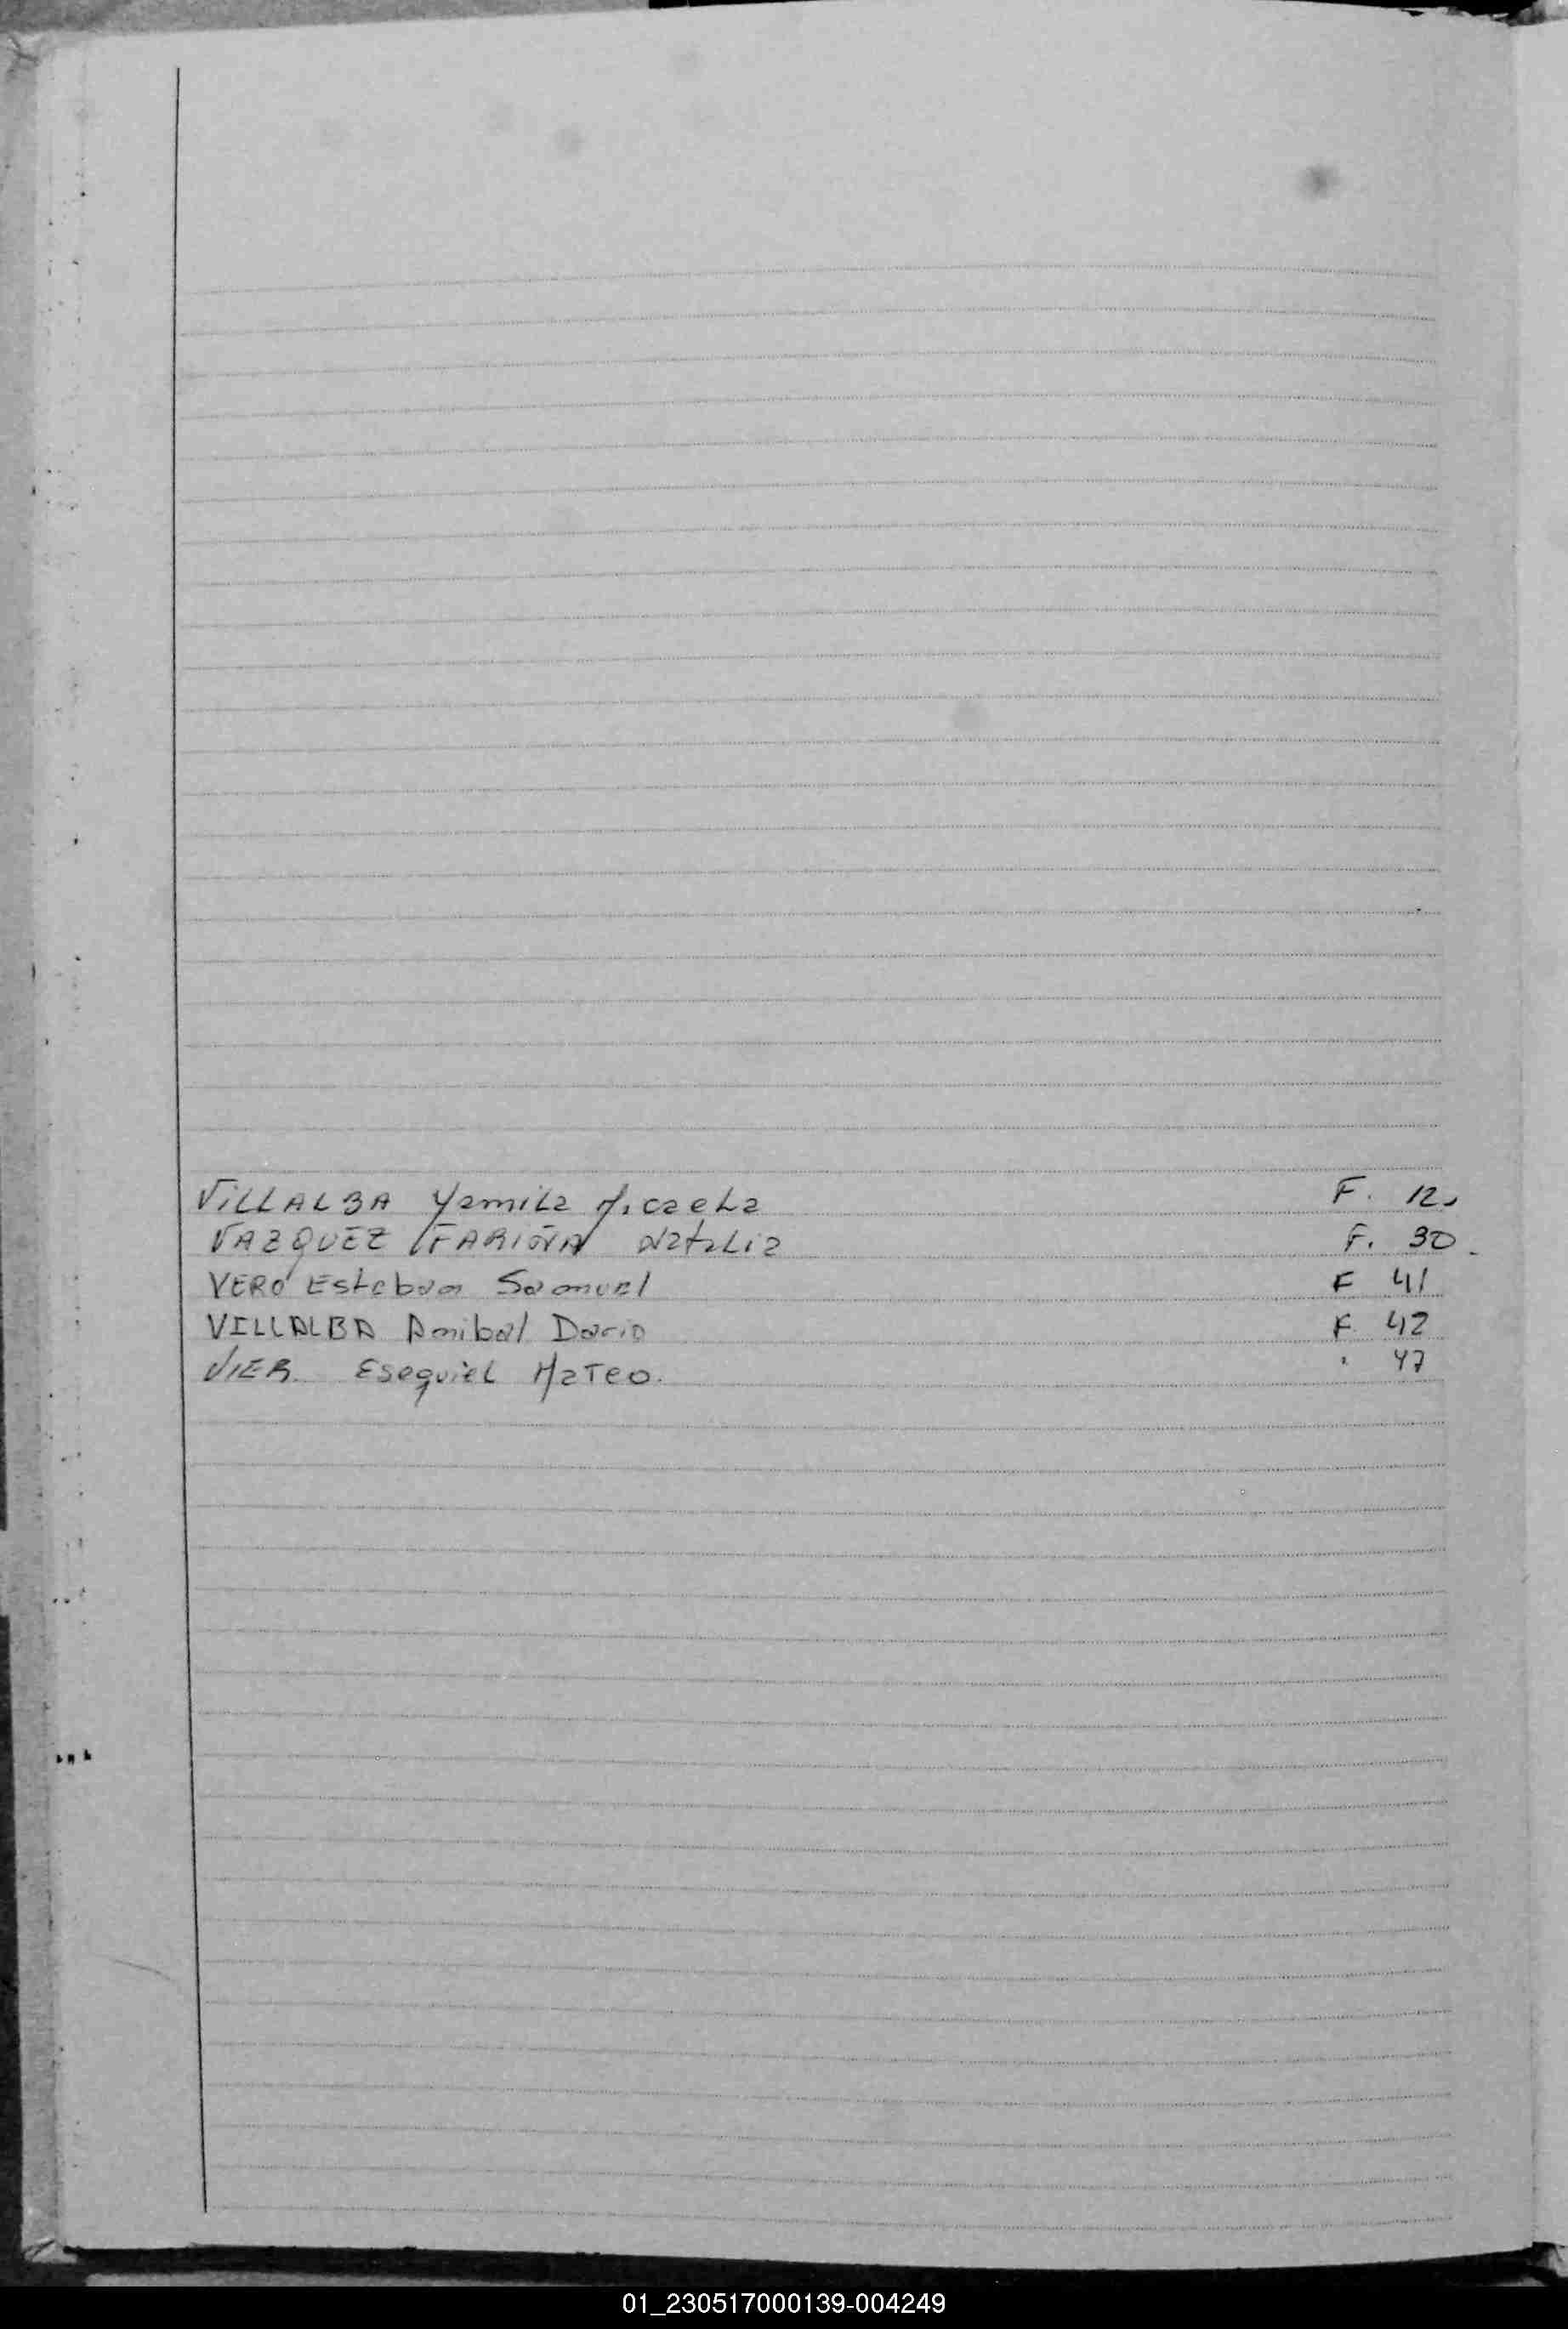 VILLALBA Yamila Micaela F. 12
VAZQUEZ FARIÑA Natalia F. 30
VERO Esteban Samuel F 41
VILLALBA Anibal Dario F. 42
VIER. Esequiel Mateo. " 47
01_230517000139-004249